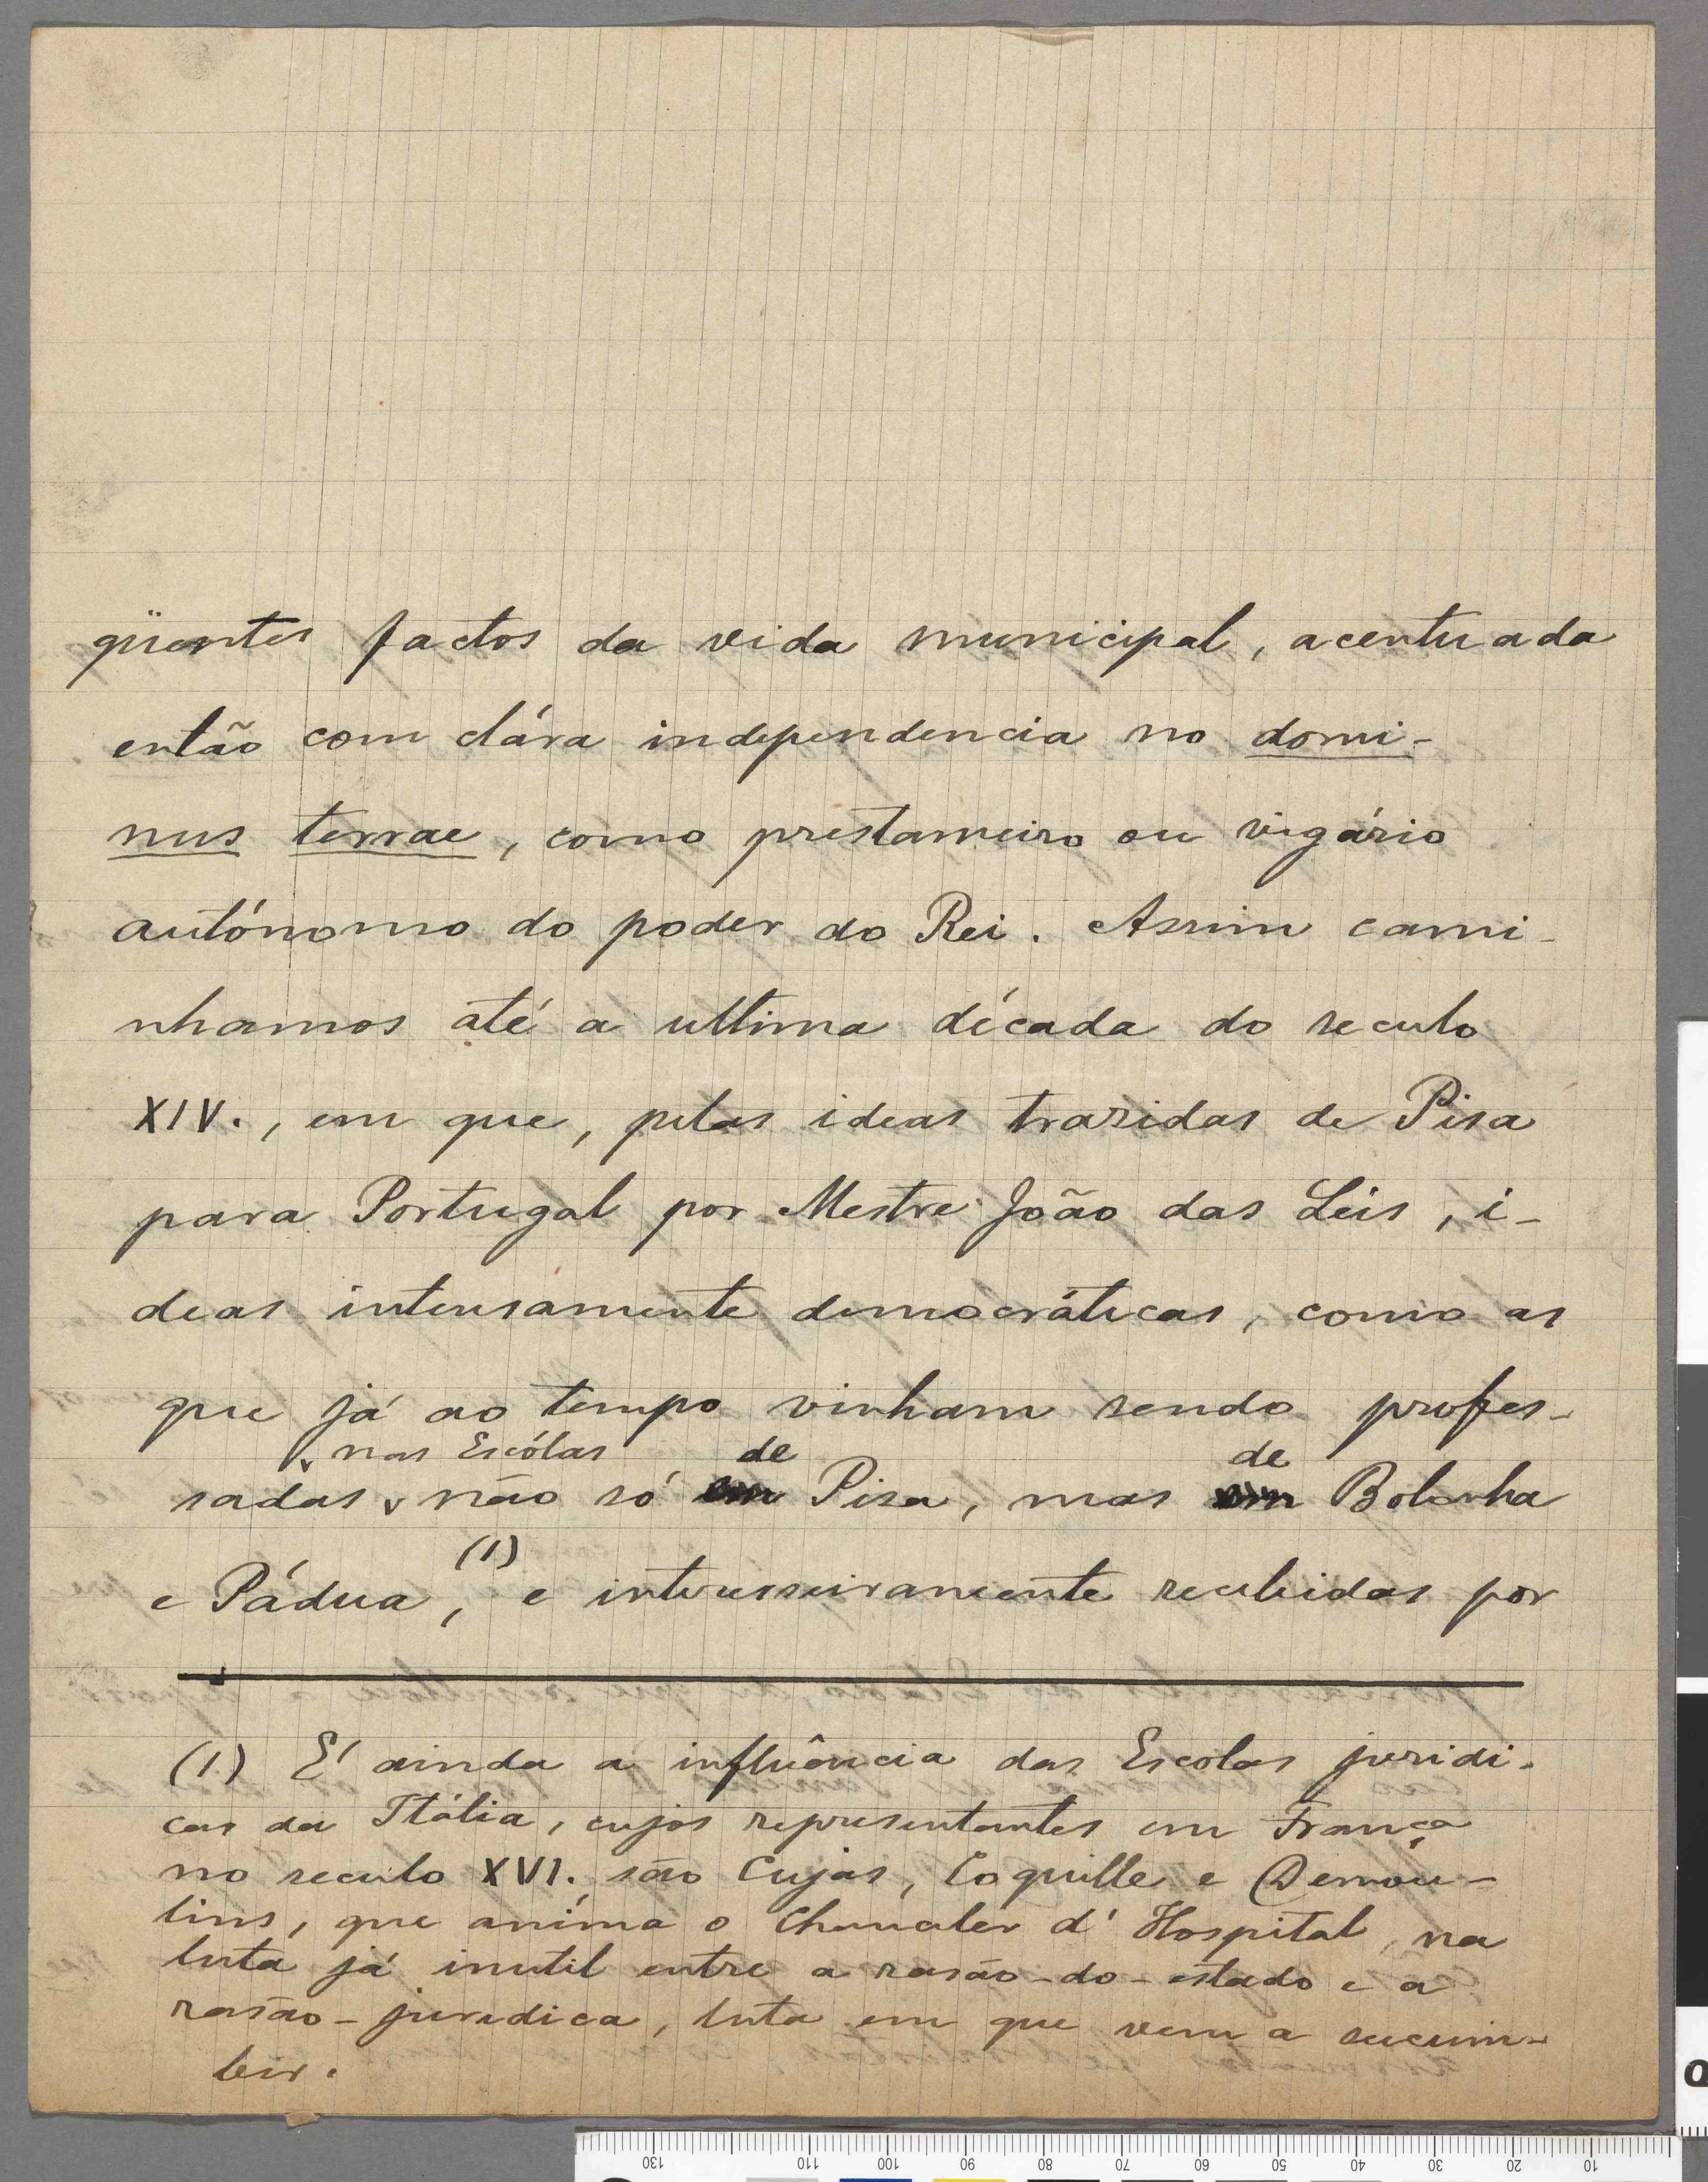 güentes factos da vida municipal, acentuada
então com clára independencia no domi-
nus terrae, como prestameiro ou vigário
autónomo do poder do Rei. Assim cami-
nhamos até a ultima década do seculo
XIV., em que, pelas ideas trazidas de Pisa
para Portugal por Mestre João das Leis, i-
deas intensamente democráticas, como as
que já ao tempo vinham sendo profes-
nas Escólas de de
sadas, não só em Pisa, mas em Bolonha
(1)
e Pádua, e interesseiramente recebidas por
(1) E' ainda a influência das Escolas juridi-
cas da Itália, cujos representantes em França
no seculo XVI. são Cujas, Coquille e Demou-
lins, que anima o Chanceler d'Hospital, na
luta já inutil entre a rasão-do-estado e a
rasão-juridica, luta em que vem a sucum-
bir.
130 110 100 90 80 70 60 50 40 30 20 10